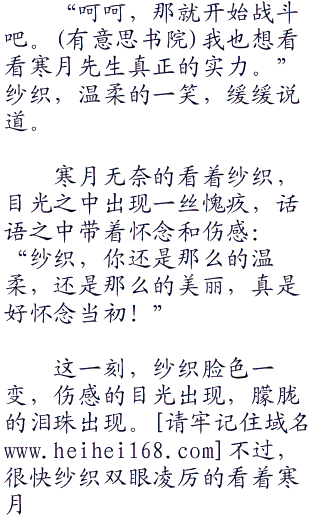 “呵呵，那就开始战斗
吧。(有意思书院)我也想看
看寒月先生真正的实力。”
纱织，温柔的一笑，缓缓说
道。
寒月无奈的看着纱织，
目光之中出现一丝愧疚，话
语之中带着怀念和伤感：
“纱织，你还是那么的温
柔，还是那么的美丽，真是
好怀念当初！”
这一刻，纱织脸色一
变，伤感的目光出现，朦胧
的泪珠出现。[请牢记住域名
www.heihei168.com]不过，
很快纱织双眼凌厉的看着寒
月